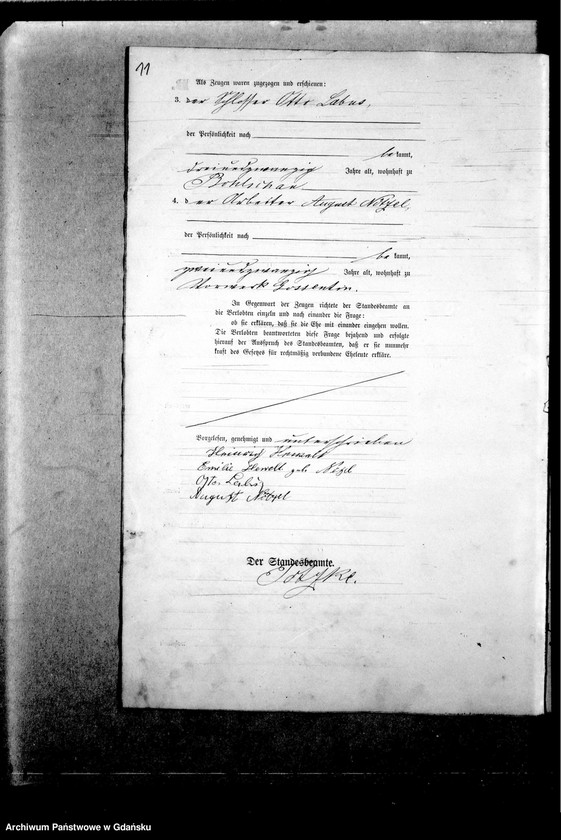 11
Als Zeugen waren zugezogen und erschienen:
3. der Schlosser Otto Labus,
der Persönlichkeit nach
bekannt,
dreiundzwanzig Jahre alt, wohnhaft zu
Bohlschau
4. der Arbeiter August Nötzel,
der Persönlichkeit nach
bekannt,
zweiundzwanzig Jahre alt, wohnhaft zu
Vorwerk Gossentin.
In Gegenwart der Zeugen richtete der Standesbeamte an
die Verlobten einzeln und nach einander die Frage:
ob sie erklären, daß sie die Ehe mit einander eingehen wollen.
Die Verlobten beantworteten diese Frage bejahend und erfolgte
hierauf der Ausspruch des Standesbeamten, daß er sie nunmehr
kraft des Gesetzes für rechtmäßig verbundene Eheleute erkläre.
Vorgelesen, genehmigt und unterschrieben
Heinrich
Emilie geb Nötzel
Otto Labus
August Nötzel
Der Standesbeamte.
Archiwum Państwowe w Gdańsku